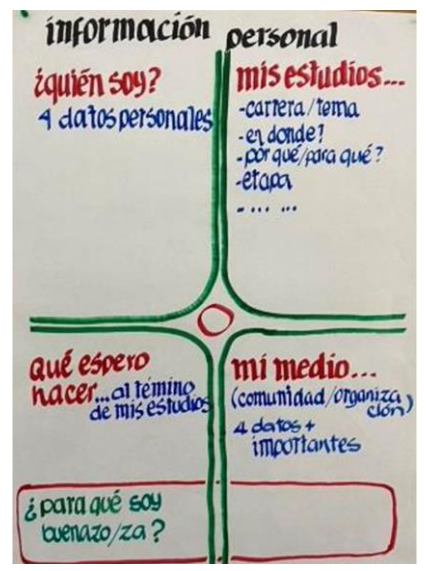 información personal
¿quién soy?
4 datos personales
mis estudios...
-carrera/tema
-en donde?
-por qué/para qué?
-etapa
-... ...
Qué espero
hacer...al témino
de mis estudios
mi medio...
(comunidad/organiza
ción)
4 datos +
importantes
¿para qué soy
buenazo/za?